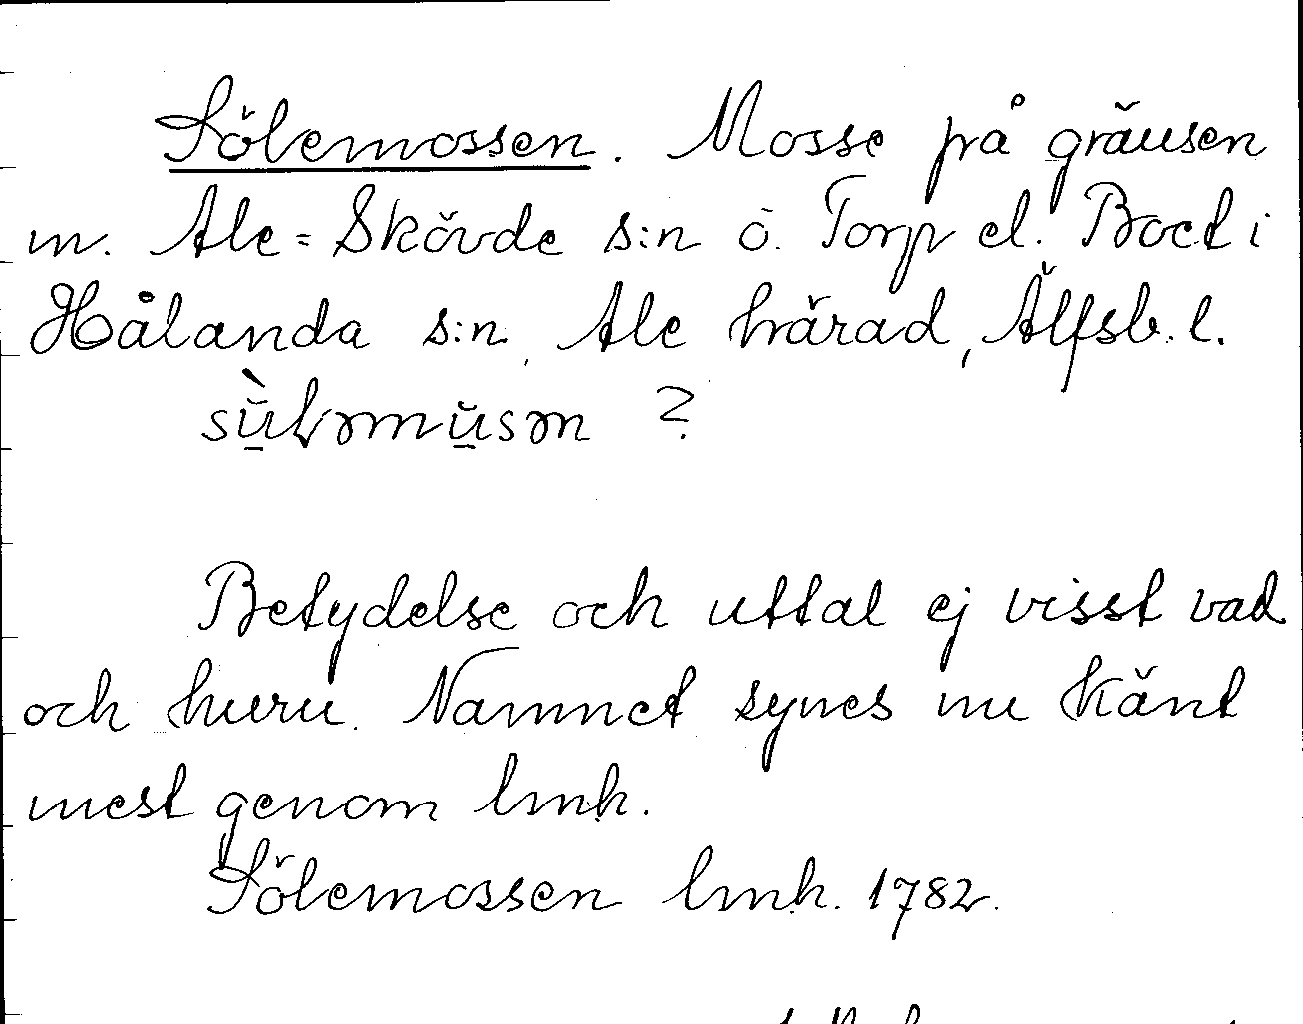 Sölemossen. Mosse på gränsen
m. Ale-Skövde s:n ö. Torp el. Boet i
Hålanda s:n, Ale härad, Älfsb. l.
?
Betydelse och uttal ej visst vad
och huru. Namnet synes nu känt
mest genom lmh.
Sölemossen lmh. 1782.